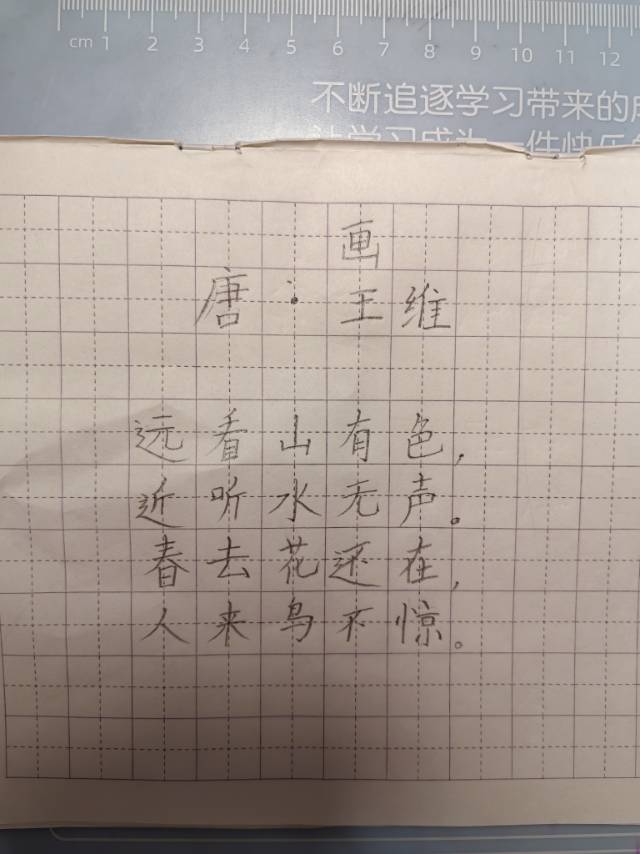 cm 1 2 3 4 5 6 7 8 9 10 11 12
不断追逐学习带来的
让学习成为一件快乐
画
唐·王维
远看山有色，
近听水无声。
春去花还在，
人来鸟不惊。